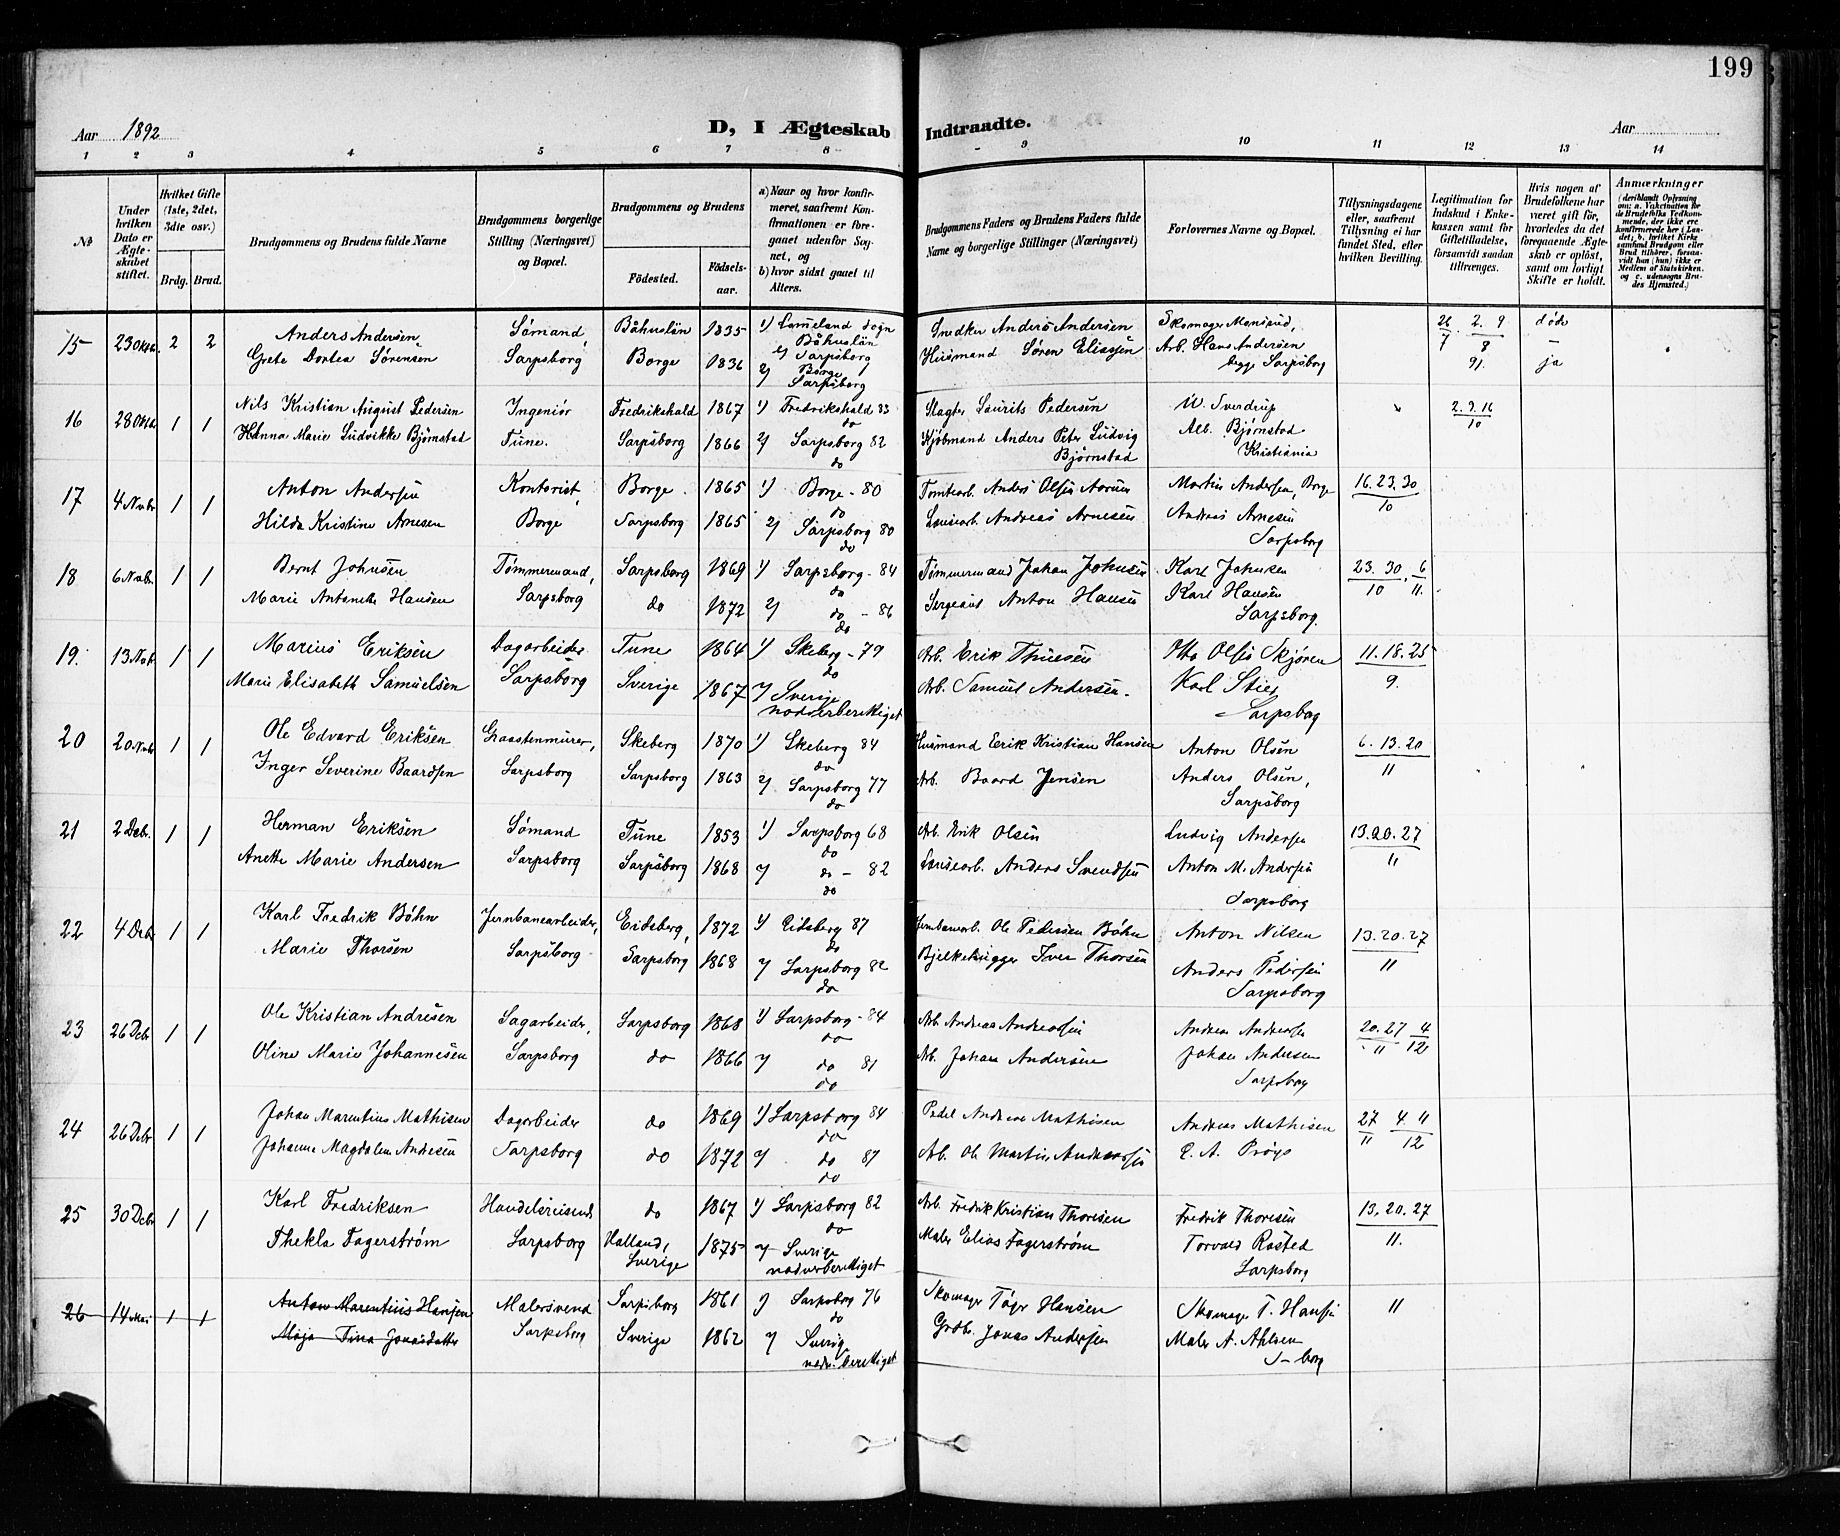 199
Aar 1892
D, I Ægteskab Indtraadte.
Aar
1 2 3 4 5 6 7 8 9 10 11 12 13 14
№
Under hvilken Dato er Ægteskabet stiftet.
Hvilket Gifte (1ste, 2det, 3die osv.)
Brdg. Brud.
Brudgommens og Brudens fulde Navne
Brudgommens borgerlige Stilling (Næringsvei) og Bopæl.
Brudgommens og Brudens
Födested.
Födselsaar.
a) Naar og hvor konfirmeret, saafremt Konfirmationen er foregaaet udenfor Sognet, og
b) hvor sidst gaaet til Alters.
Brudgommens Faders og Brudens Faders fulde Navne og borgerlige Stillinger (Næringsvei)
Forlovernes Navne og Bopæl.
Tillysningsdagene eller, saafremt Tillysning ei har fundet Sted, efter hvilken Bevilling.
Legitimation for Indskud i Enkekassen samt for Giftetilladelse, forsaavidt saadan tiltrænges.
Hvis nogen af Brudefolkene har været gift för, hvorledes da det foregaaende Ægteskab er oplöst, samt om lovligt Skifte er holdt.
Anmærkninger
15 23 Oktb. 2 2 Anders Andersen Sømand, Båhuslän 1835 1) Sogn Snedker Anders Andersen Skomager 26/7 2. 9 døde
Båhuslän
Grete Dortea Sørensen Sarpsborg Borge 1836 Sarpsborg Husmand Søren Eliassen Arb. Hans Andersen 8 –
2) Borge begge Sarpsborg 91. ja
Sarpsborg
16 28 Oktb 1 1 Nils Kristian August Pedersen Ingeniør Fredrikshald 1867 1) Fredrikshald 83 Slagter Laurits Pedersen W. Sverdrup 2. 9. 16
do 10
Hanna Marie Ludvikke Bjørnstad Tune. Sarpsborg 1866 2) Sarpsborg 82 Kjøbmand Anders Peter Ludvig Alb. Bjørnstad
do Bjørnstad Kristiania
17 4 Novbr 1 1 Anton Andersen Kontorist, Borge 1865 1) Borge - 80 Tomtearb. Anders Olsen Martin Andersen, Borge 16. 23. 30
do 10
Hilda Kristine Arnesen Borge Sarpsborg 1865 2) Sarpsborg 80 Andreas Arnesen Andreas Arnesen
do Sarpsborg
18 6 Novbr 1 1 Bernt Johnsen Tømmermand, Sarpsborg 1869 1) Sarpsborg - 84 Tømmermand Johan Johnsen Karl Johnsen 23. 30. 6
do 10 11.
Marie Antonette Hansen Sarpsborg do 1872 2) do - 86 Sergeant Anton Hansen Karl Hansen
do Sarpsborg.
19. 13 Nov. 1 1 Marius Eriksen Dagarbeider Tune 1864 1) Skeberg - 79 Arb. Erik Thuesen Otto Olsen Skjøren 11. 18. 25
do 9.
Marie Elisabeth Samuelsen Sarpsborg Sverige 1867 2) Sverige Arb. Samuel Andersen. Karl Stier
nadverberettiget Sarpsborg
20 20 Nvbr 1 1 Ole Edvard Eriksen Graastenmurer, Skeberg 1870 1) Skeberg 84 Husmand Erik Kristian Hansen Anton Olsen 6. 13. 20
do 11
Inger Severine Baardsen Sarpsborg Sarpsborg 1863 2) Sarpsborg 77 Arb. Baard Jensen Anders Olsen,
do Sarpsborg
21 2 Debr. 1 1 Herman Eriksen Sømand Tune 1853 1) Sarpsborg 68 Arb. Erik Olsen Ludvig Andersen 13. 20. 27
do 11
Anette Marie Andersen Sarpsborg Sarpsborg 1868 2) do - 82 Anders Svendsen Anton M. Andersen
do Sarpsborg
22 4 Debr 1 1 Karl Fredrik Bøhn Jernbanearbeider, Eidsberg, 1872 1) Eidsberg 87 Jernbanearb. Ole Pedersen Bøhn Anton Nilsen 13. 20. 27
do 11
Marie Thorsen Sarpsborg Sarpsborg 1868 2) Sarpsborg 82 Bjelkehugger Iver Thorsen Anders Pedersen
do Sarpsborg
23 26 Debr 1 1 Ole Kristian Andresen Sagarbeider, Sarpsborg 1868 1) Sarpsborg - 84 Arb. Andreas Andreassen Andreas Andreassen 20. 27 4
do 11 12
Oline Marie Johannesen Sarpsborg do 1866 2) do 81 Arb. Johan Andersen Johan Andersen
do Sarpsborg
24 26 Debr 1 1 Johan Marentius Mathisen Dagarbeider do 1869 1) Sarpsborg 84 Pedel Andreas Mathisen Andreas Mathisen 27 4. 11
do 11 12
Johanne Magdalene Andresen Sarpsborg do 1872 2) do 87 Arb. Ole Martin Andreassen
do
25 30 Debr 1 1 Karl Fredriksen Handelsreisende do 1867 1) Sarpsborg 82 Arb. Fredrik Kristian Thoresen Fredrik Thoresen 13. 20. 27
do 11.
Thekla Fagerstrøm Sarpsborg Halland, Sverige 1875 2) Sverige Maler Elias Fagerstrøm Torvald Rosted
nadverberettiget Sarpsborg
26 14 Mai 1 1 Anton Marentius Hansen Malersvend Sarpsborg 1861 1) Sarpsborg 76 Skomager Tøger Hansen Skomager T. Hansen 11
do
Maja Tina Jonasdatter Sarpsborg Sverige 1862 2) Sverige Grdb. Jonas Andersen Maler A. Ahlsen
nadv. berettiget S-borg